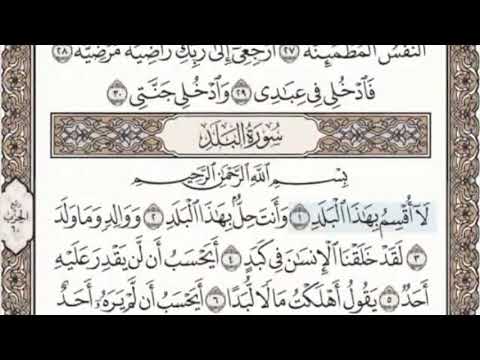 النَّفْسُ الْمُطْمَئِنَّةُ ٢٧ ارْجِعِي إِلَىٰ رَبِّكِ رَاضِيَةً مَّرْضِيَّةً ٢٨
فَادْخُلِي فِي عِبَادِي ٢٩ وَادْخُلِي جَنَّتِي ٣٠
سُورَةُ الْبَلَدِ
بِسْمِ اللَّهِ الرَّحْمَٰنِ الرَّحِيمِ
لَا أُقْسِمُ بِهَٰذَا الْبَلَدِ ١ وَأَنتَ حِلٌّ بِهَٰذَا الْبَلَدِ ٢ وَوَالِدٍ وَمَا وَلَدَ
٣ لَقَدْ خَلَقْنَا الْإِنسَانَ فِي كَبَدٍ ٤ أَيَحْسَبُ أَن لَّن يَقْدِرَ عَلَيْهِ
أَحَدٌ ٥ يَقُولُ أَهْلَكْتُ مَالًا لُّبَدًا ٦ أَيَحْسَبُ أَن لَّمْ يَرَهُ أَحَدٌ
ربع
الحزب
٦٠